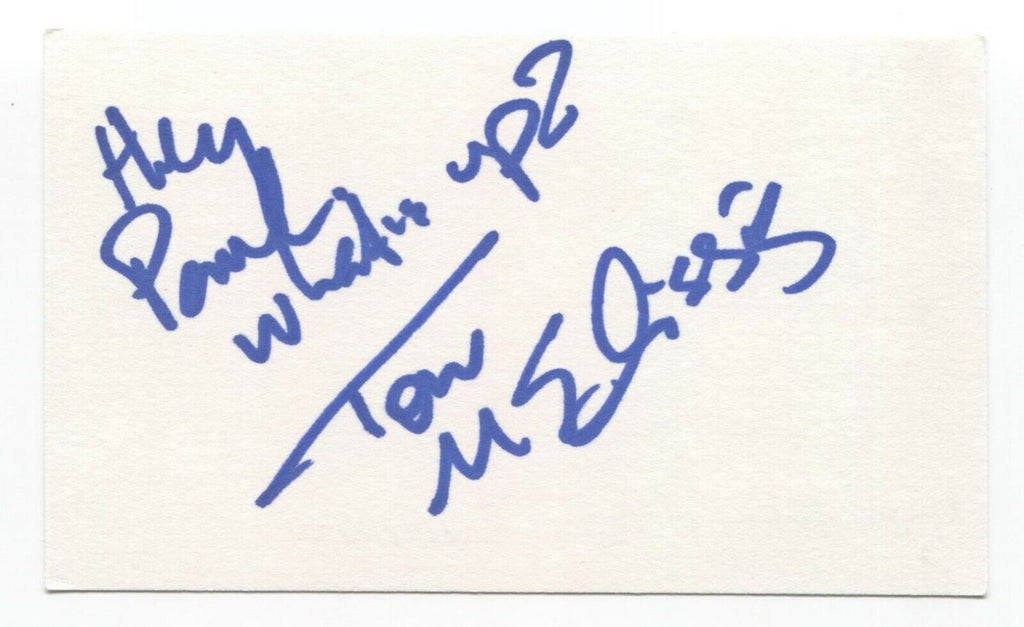 Hey
Paul
What's up?
Tom